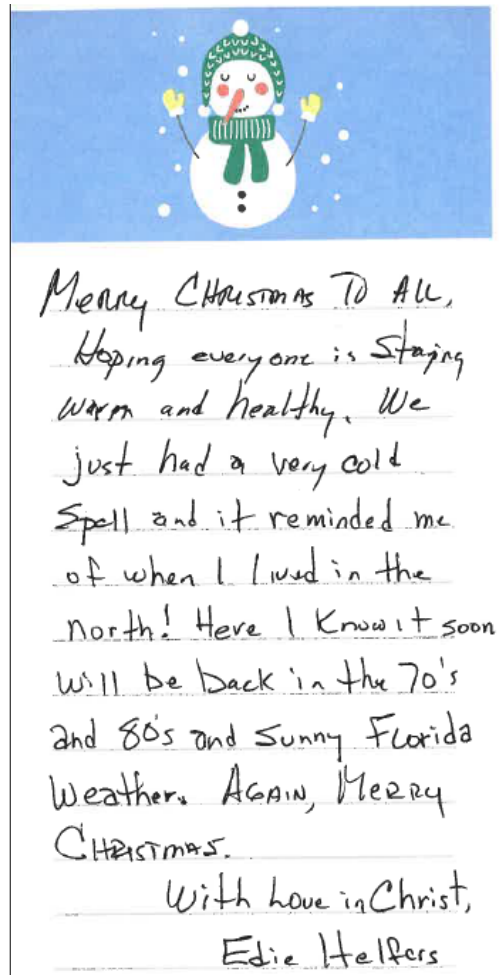 Merry Christmas To All,
Hoping everyone is staying
warm and healthy. We
just had a very cold
spell and it reminded me
of when I lived in the
north! Here I know it soon
will be back in the 70's
and 80's and sunny Florida
Weather. Again, Merry
Christmas.
With Love in Christ,
Edie Helfers